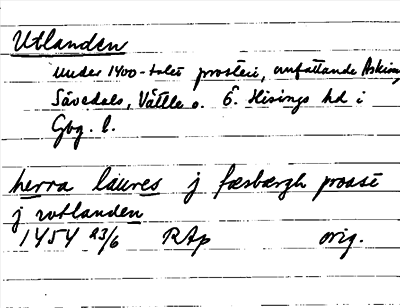 Utlanden
under 1400-talet prosteri, omfattande Askims,
Sävedals, Vättle o. Ö. Hisings hd i
Gbg. l.
herra laures j fæsbærgh proast
j wtlanden
1454 23/6 RAp orig.